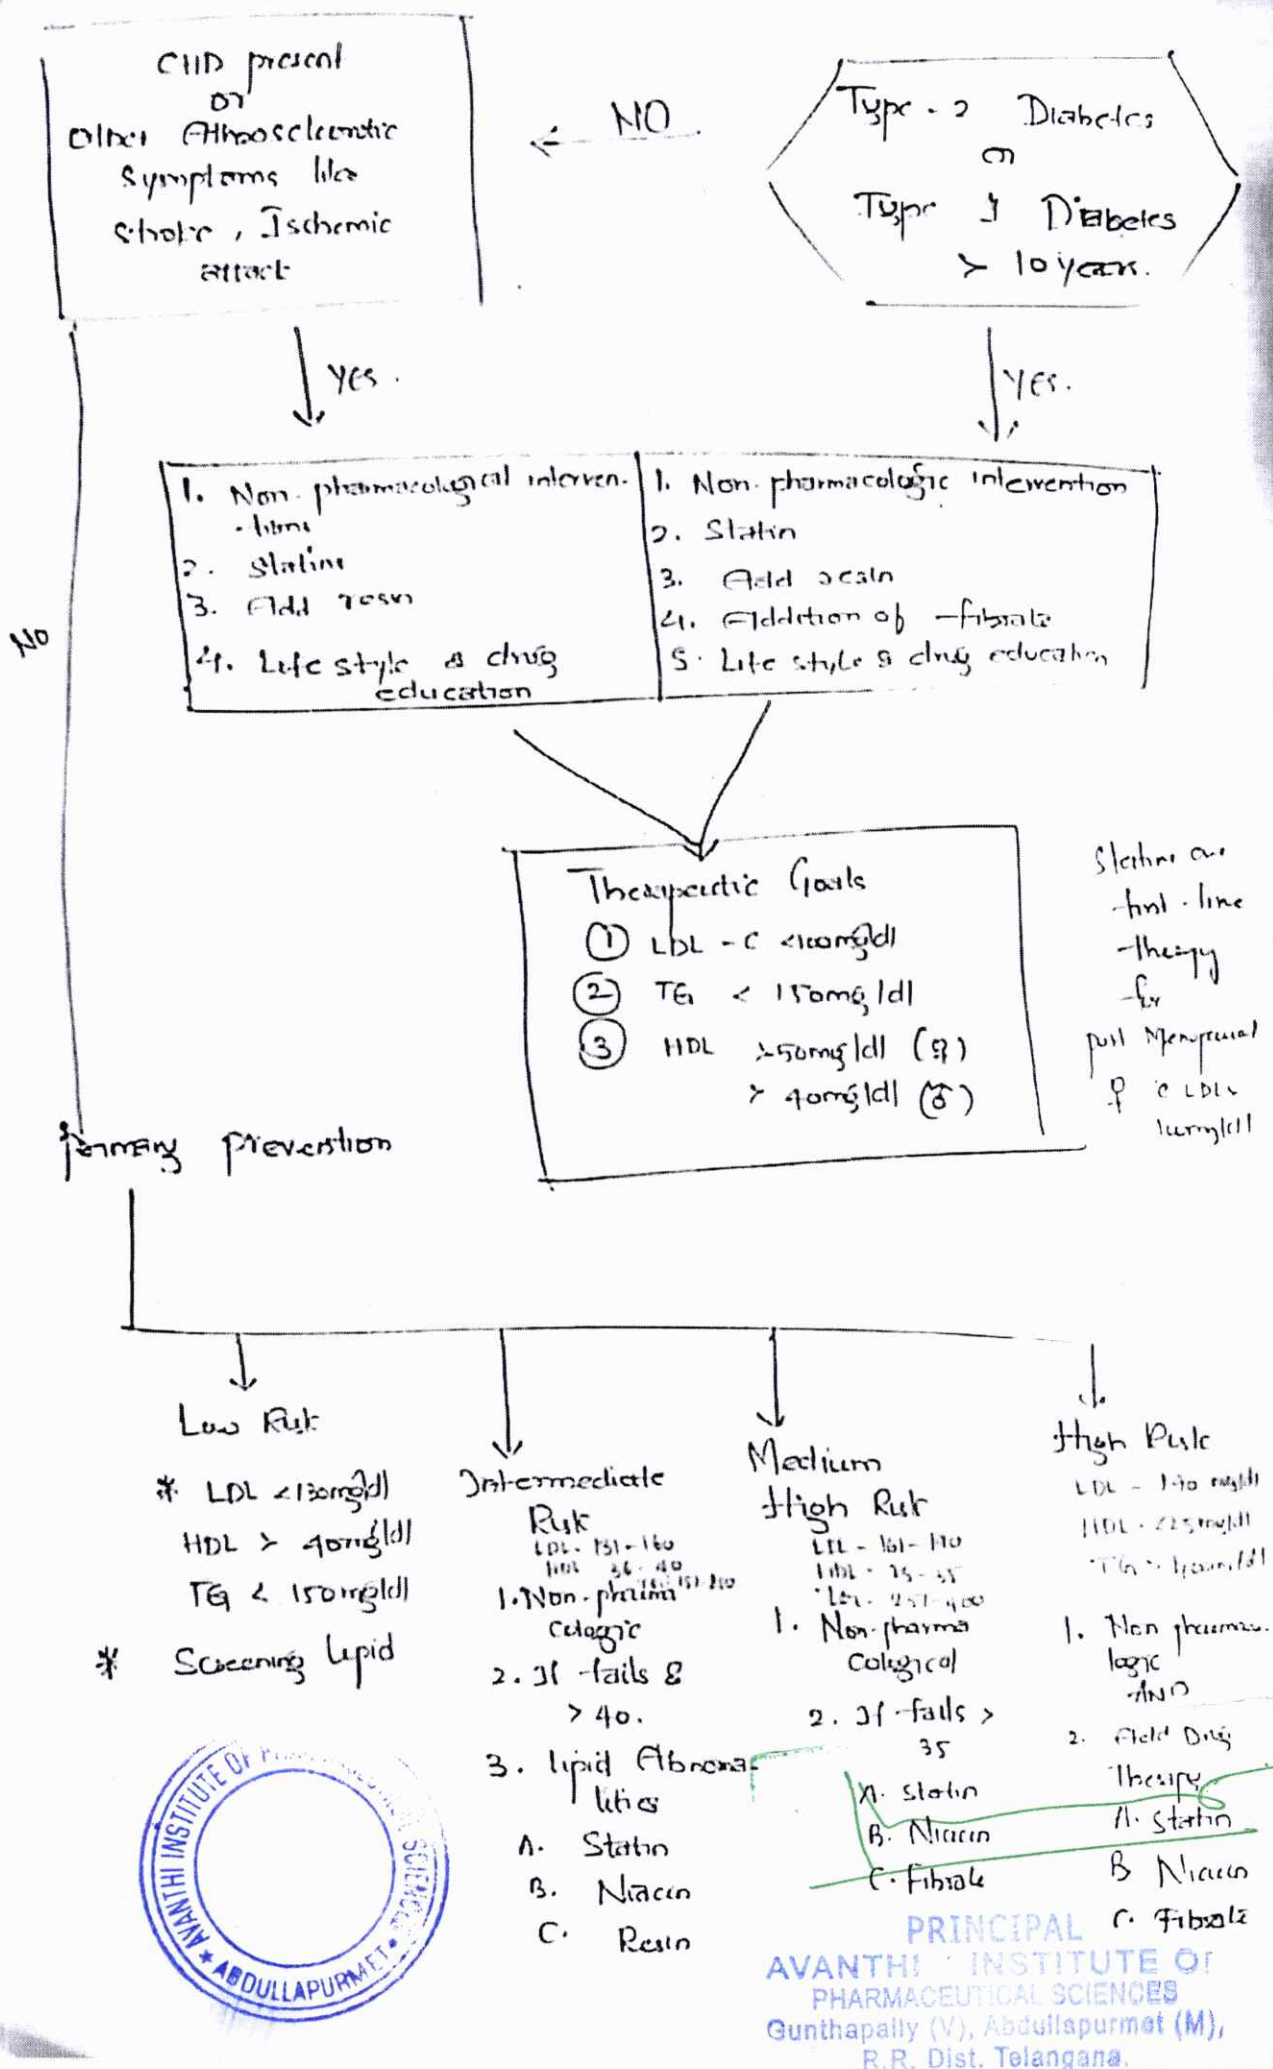 CHD present
or
Other Atherosclerotic
Symptoms like
stroke, Ischemic
attack
NO
Type - 2 Diabetes
or
Type 1 Diabetes
> 10 years.
YES.
YES.
NO
1. Non-pharmacological interven-
-tions
2. Statins
3. Add resin
4. Life style & drug
education
1. Non-pharmacologic intervention
2. Statin
3. Add resin
4. Addition of fibrate
5. Life style & drug education
Therapeutic Goals
① LDL - C <100mg/dl
② TG < 150mg/dl
③ HDL >50mg/dl (♀)
> 40mg/dl (♂)
Statins are
first-line
therapy
for
post Menopausal
♀ c LDL
Primary prevention
Low Risk
* LDL <130mg/dl
HDL > 40mg/dl
TG < 150mg/dl
* Screening lipid
Intermediate
Risk
LDL - 131-160
HDL 36-40
1. Non-pharma
cologic
2. If fails &
> 40.
3. lipid Abnorma-
lities
A. Statin
B. Niacin
C. Resin
Medium
High Risk
LDL - 161-190
HDL - 25-35
1. Non-pharma
cological
2. If fails >
35
A. Statin
B. Niacin
C. Fibrate
High Risk
LDL - 190 mg/dl
HDL - <25mg/dl
1. Non pharmaco-
logic
AND
2. Add Drug
Therapy
A. Statin
B Niacin
C. Fibrate
AVANTHI INSTITUTE OF PHARMACEUTICAL SCIENCES
★ ABDULLAPURMET
PRINCIPAL
AVANTHI INSTITUTE OF
PHARMACEUTICAL SCIENCES
Gunthapally (V), Abdullapurmet (M),
R.R. Dist. Telangana.